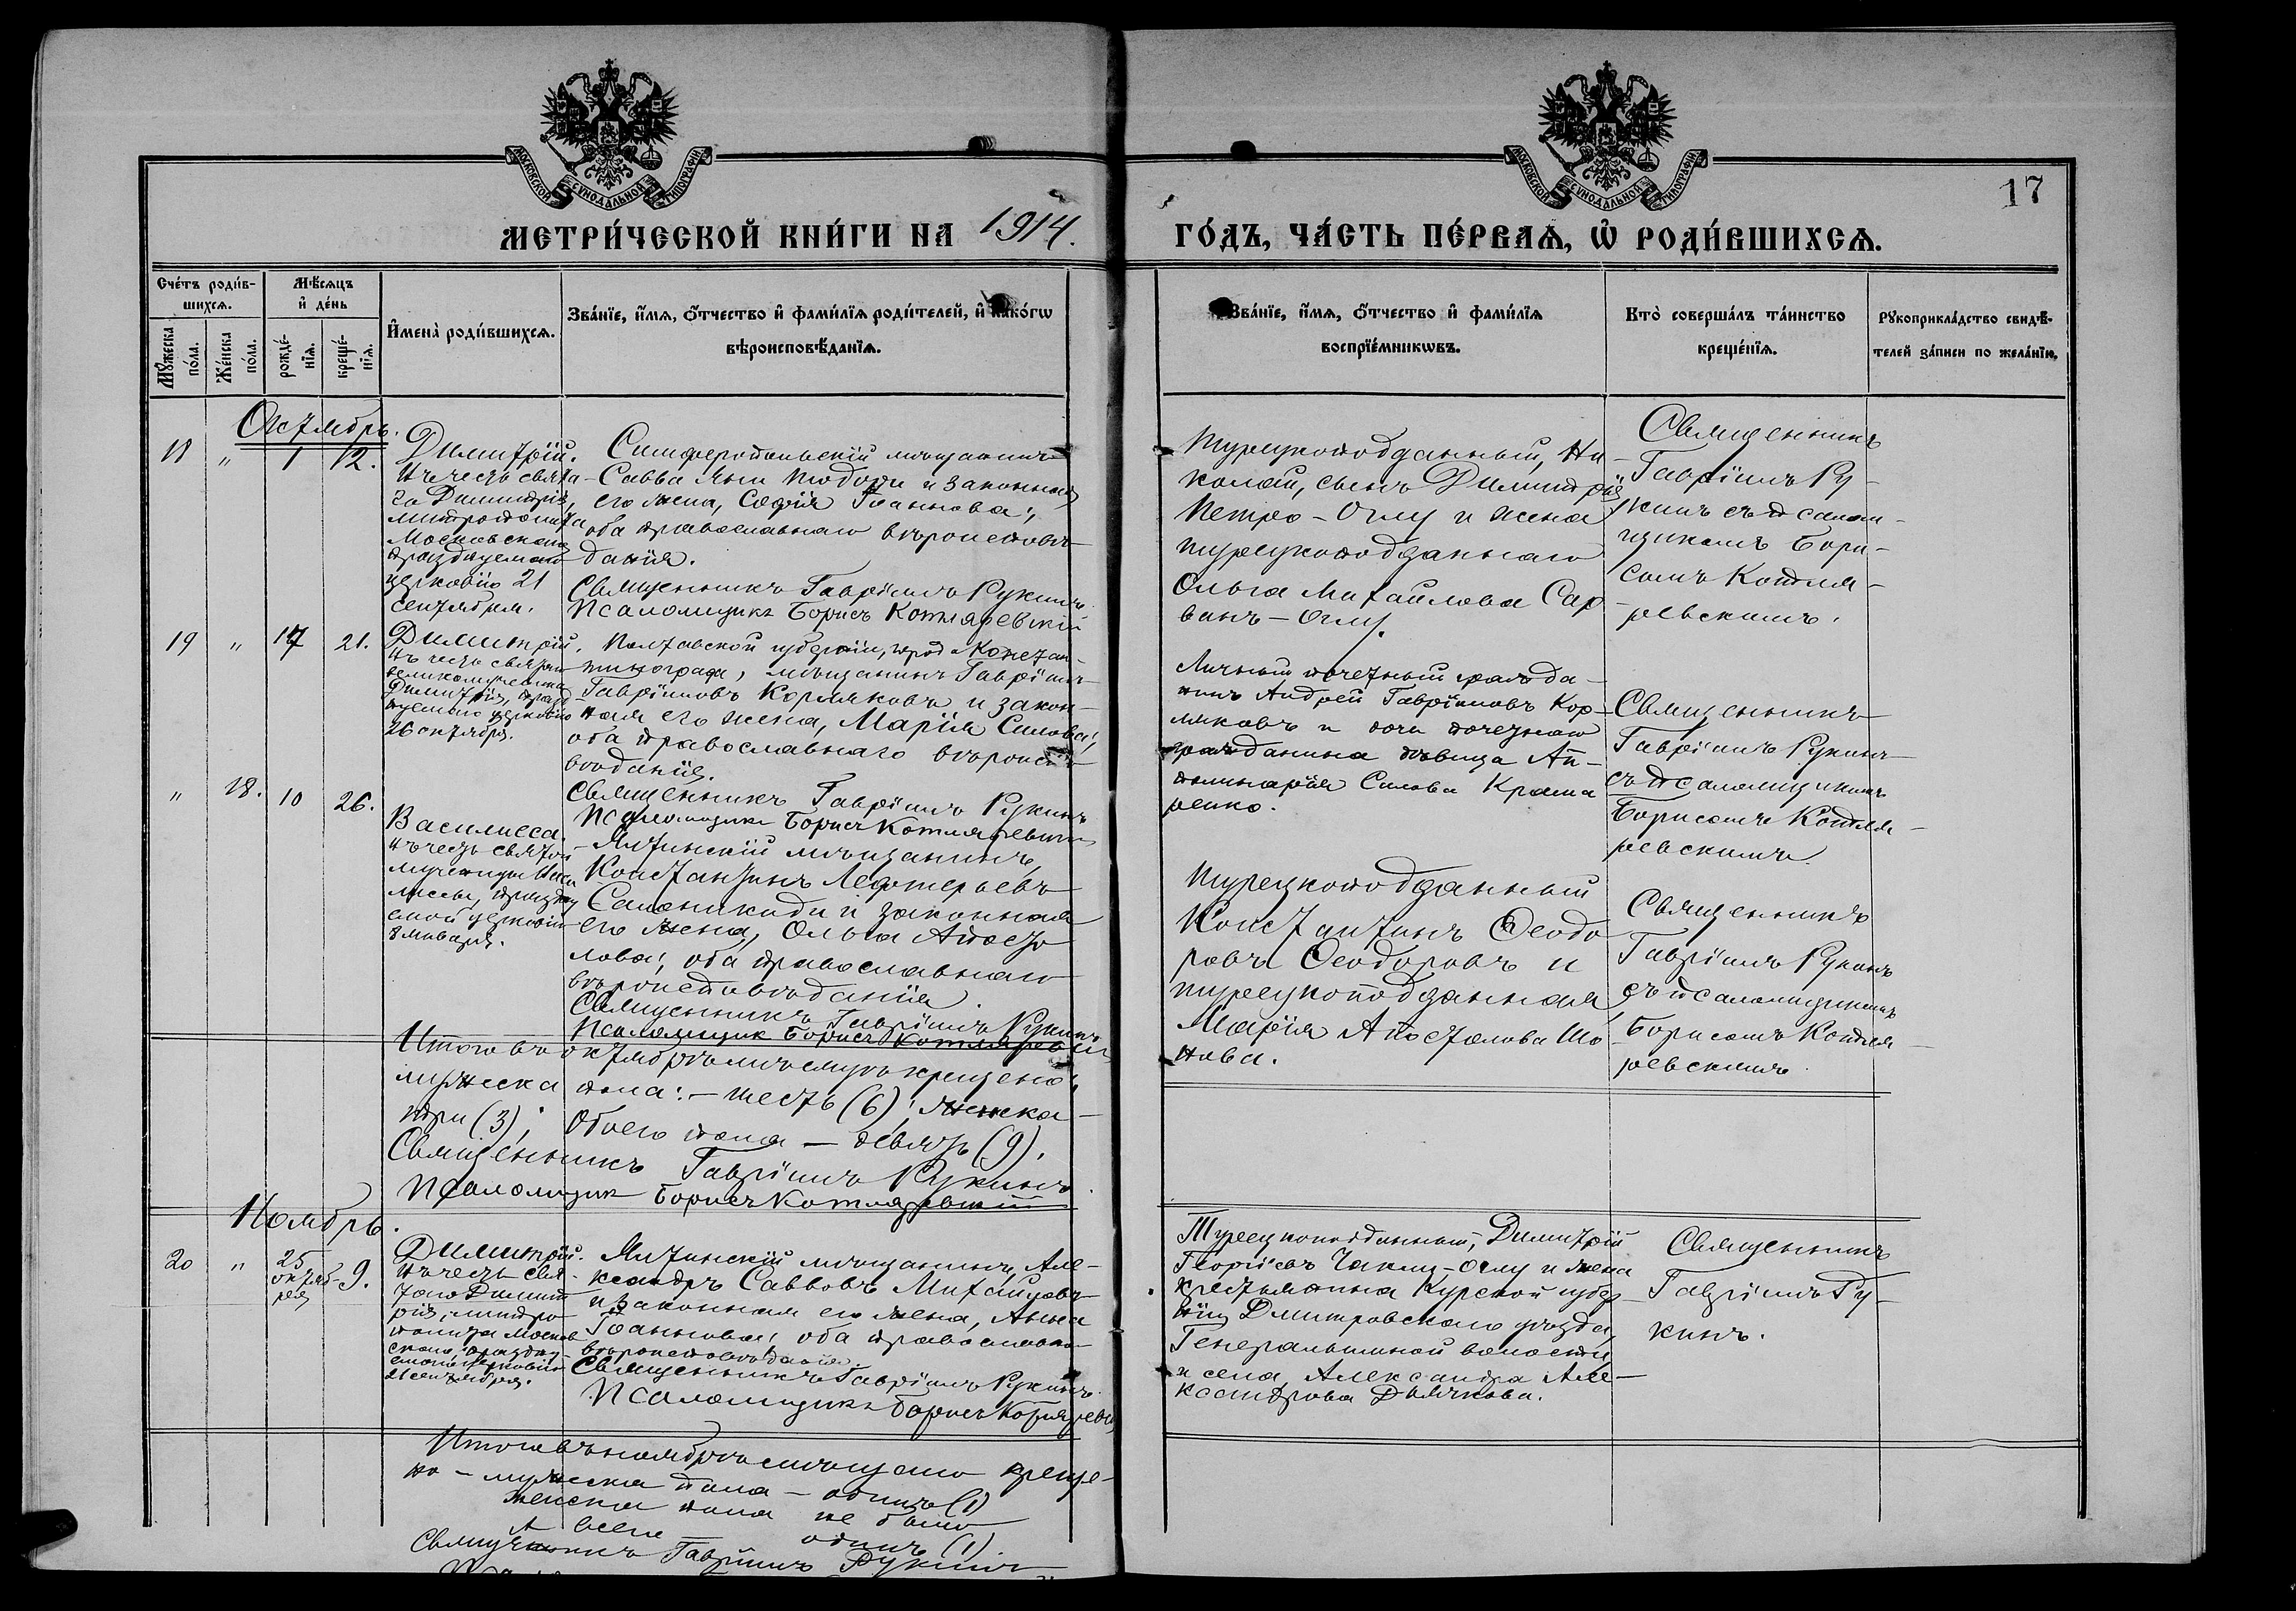 МОСКОВСКОЙ СѴНОДАЛЬНОЙ ТИПОГРАФІИ
МОСКОВСКОЙ СѴНОДАЛЬНОЙ ТИПОГРАФІИ
17
МЕТРИ́ЧЕСКОЙ КНИ́ГИ НА 1914.
ГО́ДЪ, ЧА́СТЬ ПЕ́РВАѦ, Ѡ҆ РОДИ́ВШИХСѦ.
Сче́тъ роди́в-
шихсѧ.
Мꙋ́жеска
по́ла.
Же́нска
по́ла.
Мѣ́сѧцъ
и҆ де́нь
рожде́-
нїѧ.
креще́-
нїѧ.
И҆мена̀ роди́вшихсѧ.
Зва́нїе, и҆́мѧ, ѻ҆́тчество и҆ фами́лїѧ роди́телей, и҆ како́гѡ
вѣроисповѣ́данїѧ.
Зва́нїе, и҆́мѧ, ѻ҆́тчество и҆ фами́лїѧ
воспрїе́мникѡвъ.
Кто̀ соверша́лъ та́инство
креще́нїѧ.
Рꙋкоприкла́дство свидѣ́-
телей за́писи по жела́нїю.
Октябрь.
18 " 1 12.
Димитрій.
Въ честь свята-
го Димитрія,
митрополита
Московскаго
празднуемаго
церковію 21
сентября.
Симферопольскій мѣщанинъ
Савва Яни Тодори и законная
его жена, Софія Іоаннова;
оба православнаго вѣроисповѣ-
данія.
Священникъ Гавріилъ Рукинъ.
Псаломщикъ Борисъ Котляревскій
Турецкоподданный, Ни-
колай, сынъ Димитрія
Петро-Оглу и жена
турецкоподданнаго
Ольга Михайлова Сар-
банъ-Оглу.
Священникъ
Гавріилъ Ру-
кинъ съ псалом-
щикомъ Бори-
сомъ Котля-
ревскимъ.
19 " 17 21.
Димитрій.
Въ честь святаго
великомученика
Димитрія, празд-
нуемаго церковію
26 октября.
Полтавской губерніи, города Констан-
тинограда, мѣщанинъ Гавріилъ
Гавріиловъ Кормяковъ и закон-
ная его жена, Марія Силова;
оба православнаго вѣроиспо-
вѣданія.
Священникъ Гавріилъ Рукинъ
Псаломщикъ Борисъ Котляревскій
Личный почетный гражда-
нинъ Андрей Гавріиловъ Кор-
мяковъ и дочь почетнаго
гражданина дѣвица Ап-
полинарія Силова Крама
ренко.
Священникъ
Гавріилъ Рукинъ
съ псаломщикомъ
Борисомъ Котля-
ревскимъ.
" 18. 10 26.
Василисса.
Въ честь святой
мученицы Васи
лиссы, праздну
емой церковію
8 января.
Ялтинскій мѣщанинъ,
Константинъ Лефтерьевъ
Салоникиди и законная
его жена, Ольга Апосто
лова; оба православнаго
вѣроисповѣданія.
Священникъ Гавріилъ Рукинъ
Псаломщик Борисъ Котляревскій
Турецкоподданный
Константинъ Ѳеодо
ровъ Ѳеодоровъ и
турецкоподданная
Марія Апостолова По
пова.
Священникъ
Гавріилъ Рукинъ
съ псаломщикомъ
Борисомъ Котля-
ревскимъ.
Итого въ октябрѣ мѣсяцѣ крещено:
мужеска пола: – шесть (6); женска –
три (3); Обоего пола – девять (9).
Священникъ Гавріилъ Рукинъ.
Псаломщик Борисъ Котляревскій
Ноябрь.
20 " 25
октяб-
ря 9.
Димитрій.
Въ честь свя-
таго Димит
рія, митро-
полита Москов
скаго, праздну
емаго церковію
21 сентября.
Ялтинскій мѣщанинъ, Але-
ксандръ Саввовъ Михайловъ
и законная его жена, Анна
Іоаннова; оба православна-
вѣроисповѣданія.
Священникъ Гавріилъ Рукинъ.
Псаломщикъ Борисъ Котляревскій
Турецкоподданный, Димитрій
Георгіевъ Чакиц-оглу и жена
крестьянина Курской губер
ніи Дмитровскаго уѣзда,
Генеральшиной волости
и села, Александра Але-
ксандрова Дьячкова.
Священникъ
Гавріилъ Ру-
кинъ.
Итого въ ноябрѣ мѣсяцѣ креще-
но – мужеска пола – одинъ (1)
женска пола не было
А всего одинъ (1).
Священникъ Гавріилъ Рукинъ